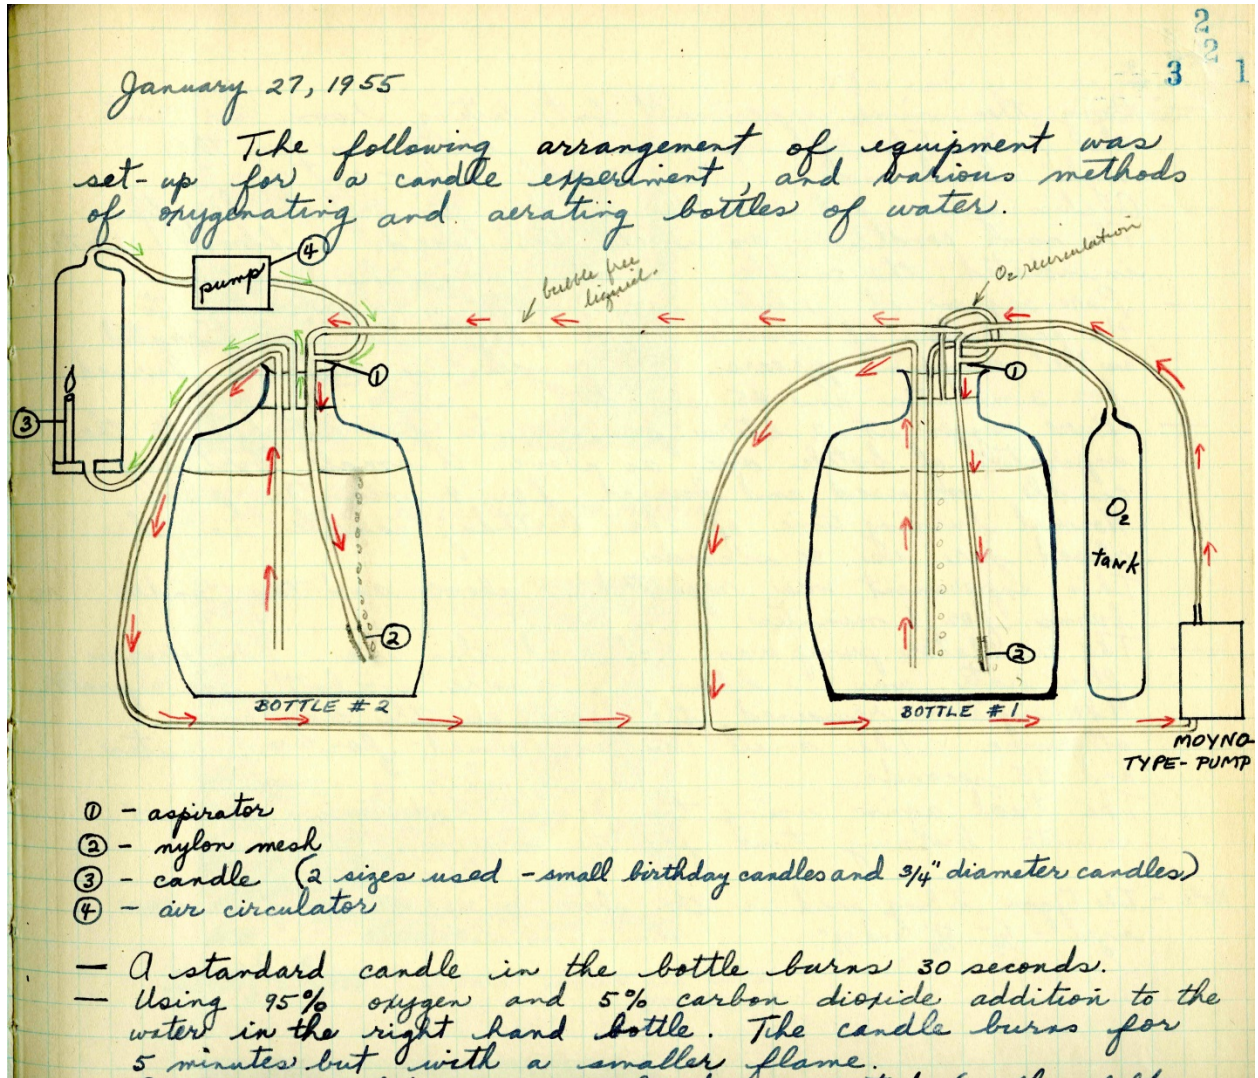 2
2
3 1
January 27, 1955
The following arrangement of equipment was
set-up for a candle experiment, and various methods
of oxygenating and aerating bottles of water.
④
pump
bubble free
liquid.
O₂ recirculation
①
①
③
O₂
tank
②
②
BOTTLE #2
BOTTLE #1
MOYNO
TYPE-PUMP
① - aspirator
② - nylon mesh
③ - candle (2 sizes used - small birthday candles and 3/4" diameter candles)
④ - air circulator
— A standard candle in the bottle burns 30 seconds.
— Using 95% oxygen and 5% carbon dioxide addition to the
water in the right hand bottle. The candle burns for
5 minutes but with a smaller flame.